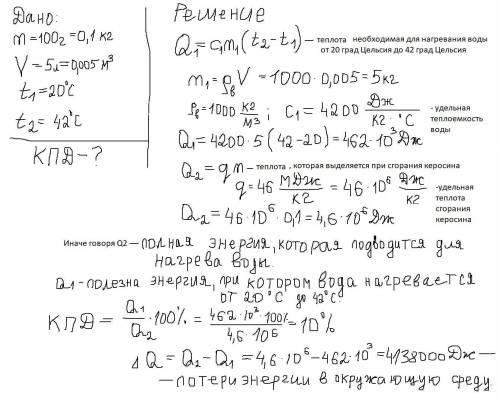 Дано:
m=100г=0,1 кг
V=5л=0,005 м³
t₁=20°C
t₂=42°C
КПД-?
Решение
Q₁=c₁m₁(t₂-t₁) — теплота необходимая для нагревания воды
от 20 град Цельсия до 42 град Цельсия
m₁=ρвV=1000·0,005=5кг
ρв=1000 кг/м³; c₁=4200 Дж/кг·°C - удельная теплоемкость воды
Q₁=4200·5(42-20)=462·10³Дж
Q₂=qm — теплота, которая выделяется при сгорания керосина
q=46 МДж/кг=46·10⁶ Дж/кг -удельная теплота сгорания керосина
Q₂=46·10⁶·0,1=4,6·10⁶Дж
Иначе говоря Q2 — полная энергия, которая подводится для
нагрева воды.
Q₁-полезна энергия, при котором вода нагревается
от 20°C до 42°C.
КПД=Q₁/Q₂·100%=462·10³·100%/4,6·10⁶=10%
ΔQ=Q₂-Q₁=4,6·10⁶-462·10³=4138000Дж—
—потери энергии в окружающую среду.